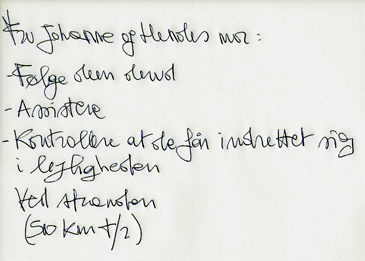 Fru Johanne og Hendes mor:
- Følge dem derud
- Assistere
- Kontrollere at de får indrettet sig
i lejligheden
Ved stranden
(50 km t/2)